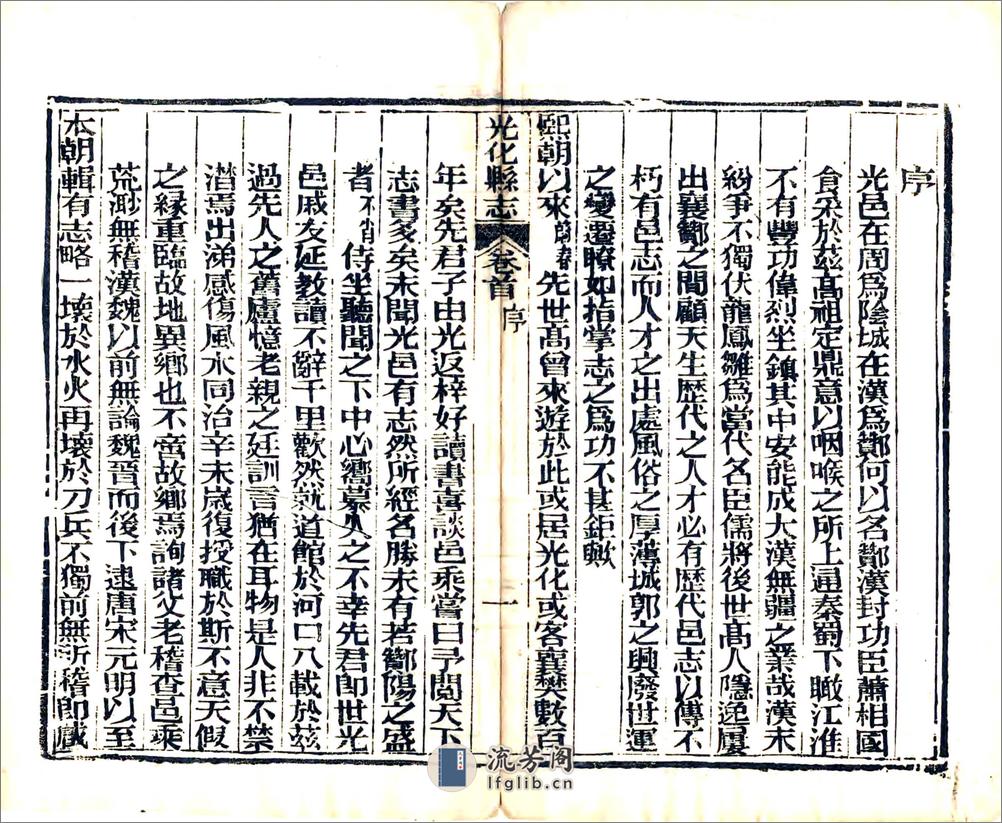 序
光邑在周爲陰城在漢爲酇何以名酇漢封功臣蕭相國
食采於茲高祖定鼎意以咽喉之所上通秦蜀下瞰江淮
不有豐功偉烈坐鎮其中安能成大漢無疆之業哉漢末
紛爭不獨伏龍鳳雛爲當代名臣儒將後世高人隱逸屢
出襄酇之間顧天生歷代之人才必有歷代邑志以傳不
朽有邑志而人才之出處風俗之厚薄城郭之興廢世運
之變遷瞭如指掌志之爲功不甚鉅歟
熙朝以來蔚春先世高曾來遊於此或居光化或客襄樊數百
光化縣志 卷首 序 一
年矣先君子由光返梓好讀書喜談邑乘嘗曰予閱天下
志書多矣未聞光邑有志然所經名勝未有若酇陽之盛
者不肖侍坐聽聞之下中心嚮慕久之不幸先君卽世光
邑戚友延教讀不辭千里歡然就道館於河口八載於茲
過先人之舊廬憶老親之廷訓言猶在耳物是人非不禁
潸焉出涕感傷風水同治辛未歲復授職於斯不意天假
之緣重臨故地異鄉也不啻故鄉焉詢諸父老稽查邑乘
荒渺無稽漢魏以前無論魏晉而後下逮唐宋元明以至
本朝輯有志略一壞於水火再壞於刀兵不獨前無所稽卽咸
流芳阁
lfglib.cn